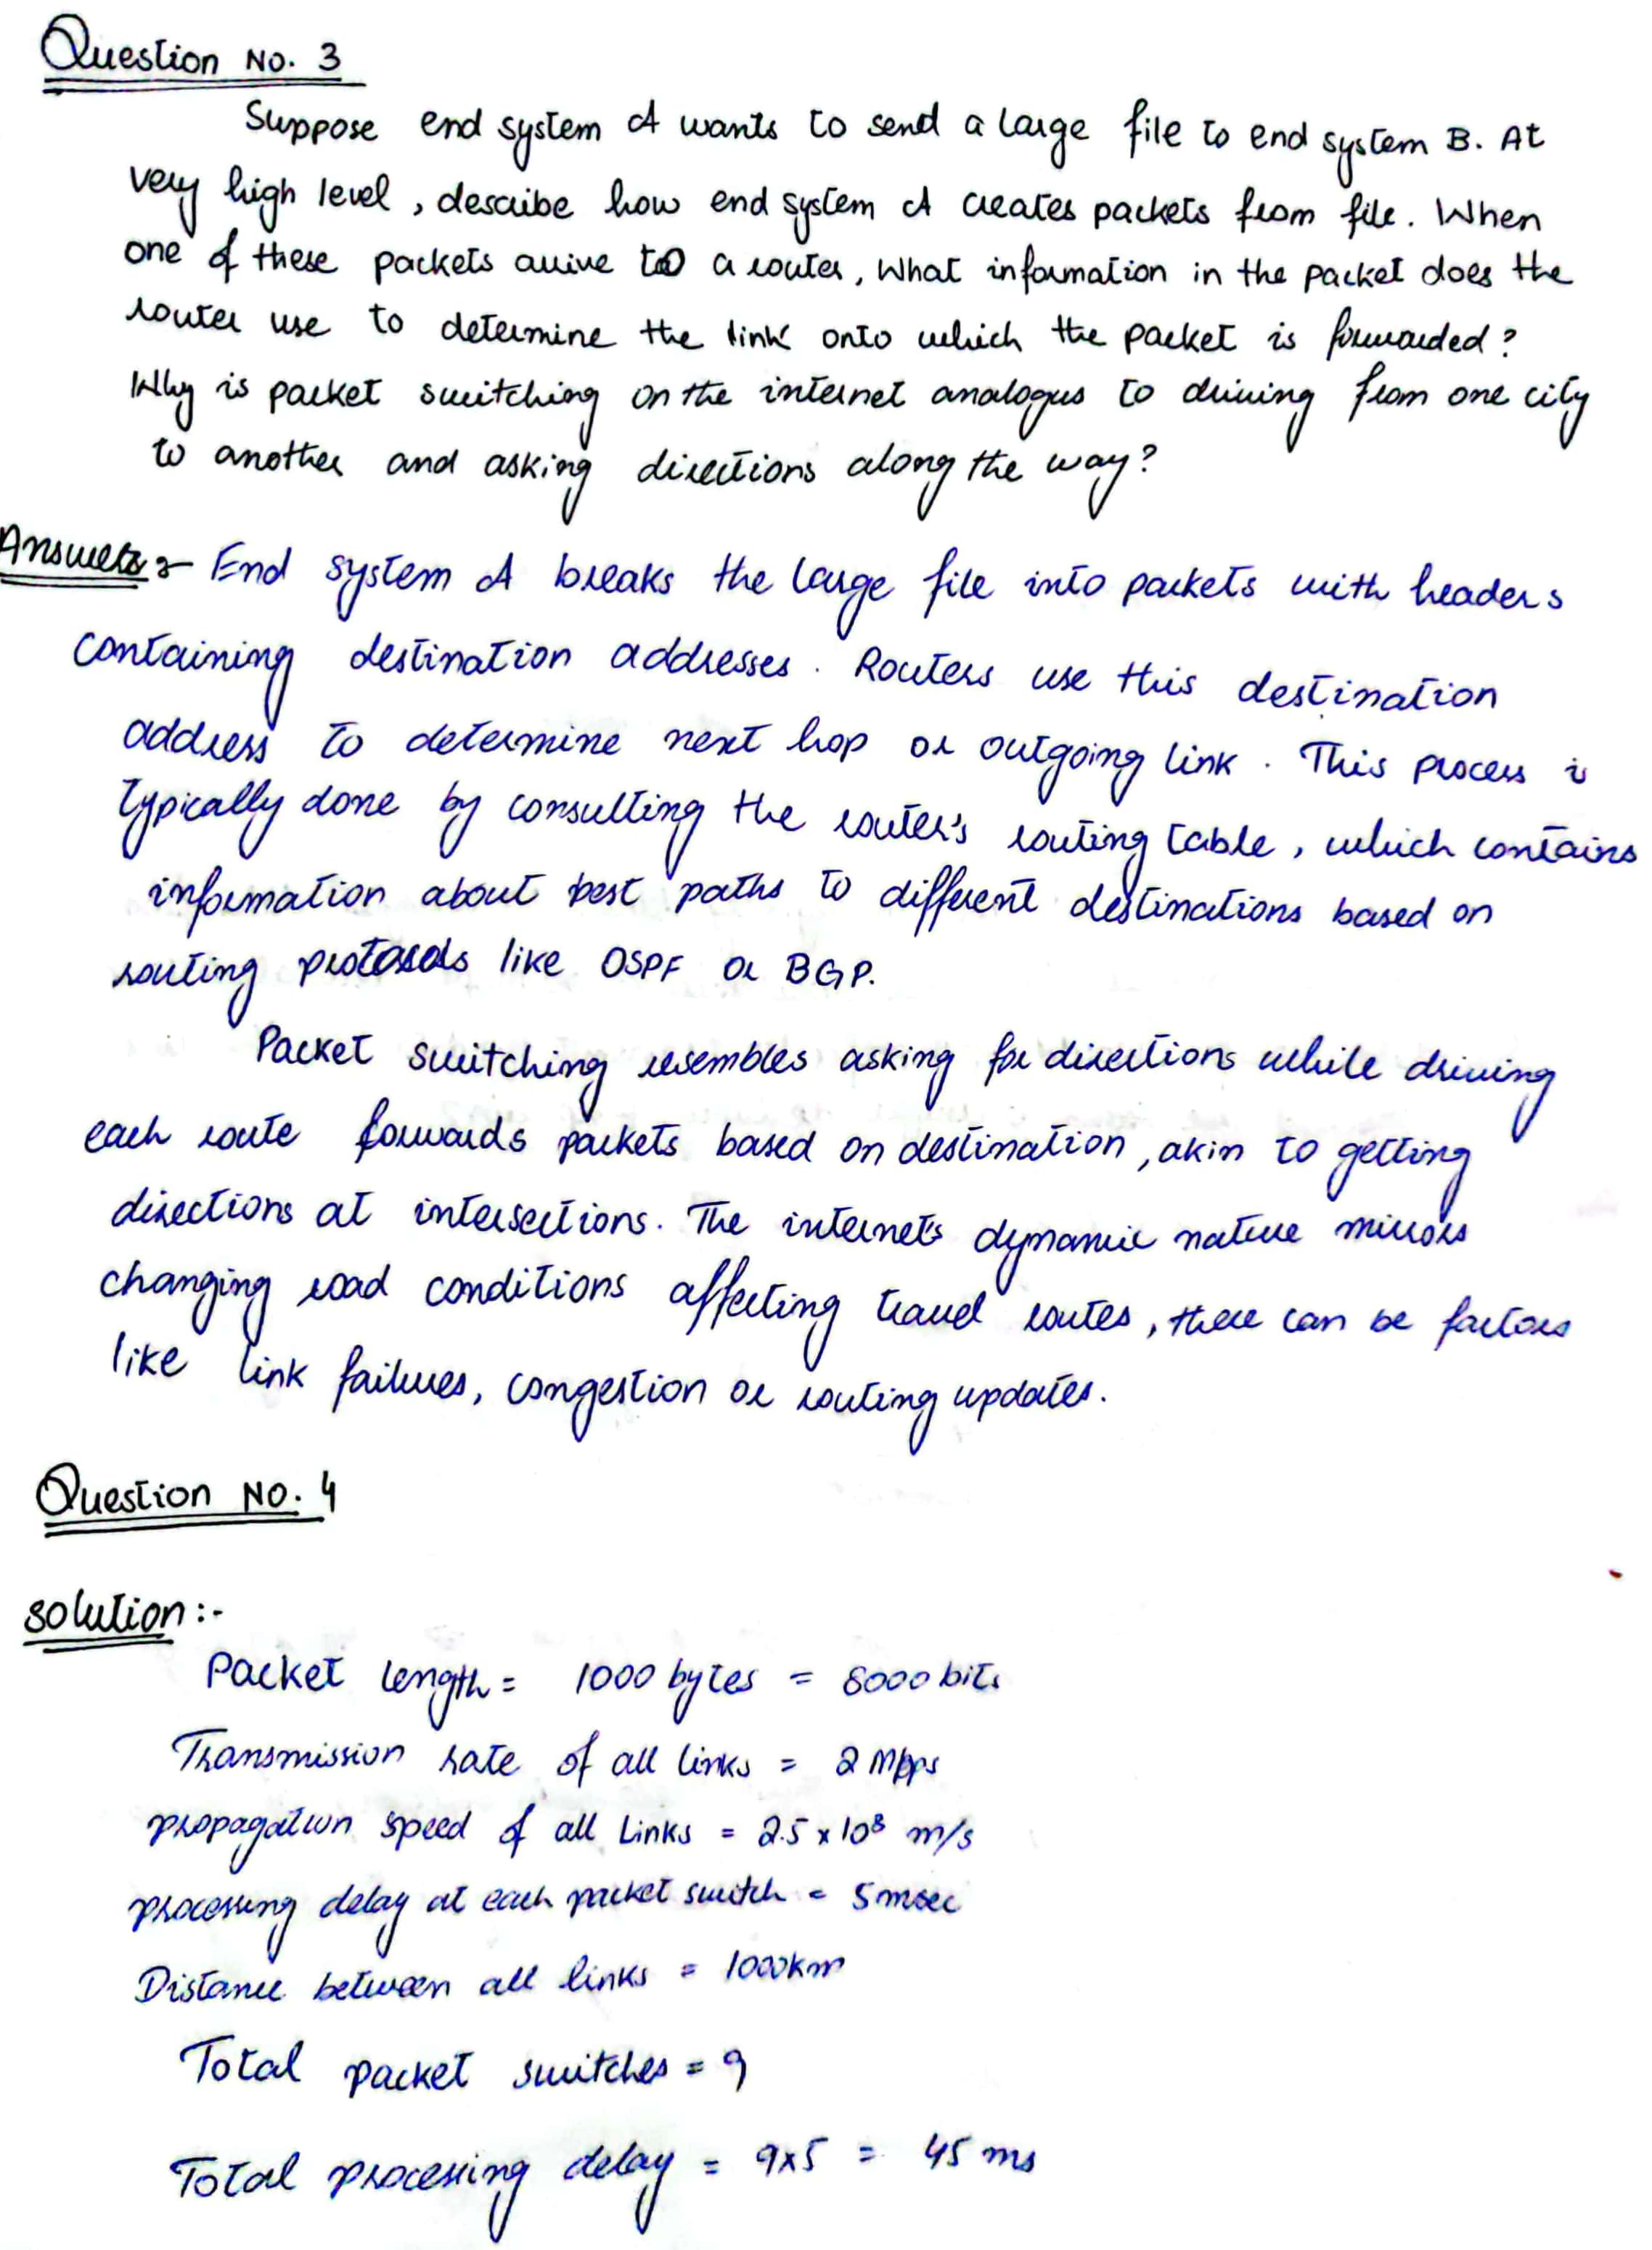 Question No. 3
Suppose end system A wants to send a large file to end system B. At
very high level, describe how end system A creates packets from file. When
one of these packets arrive to a router, What information in the packet does the
router use to determine the link onto which the packet is forwarded?
Why is packet switching on the internet analogus to driving from one city
to another and asking directions along the way?
Answer:- End system A breaks the large file into packets with headers
containing destination addresses. Routers use this destination
address to determine next hop or outgoing link. This process is
typically done by consulting the router's routing table, which contains
information about best paths to different destinations based on
routing protocols like OSPF or BGP.
Packet switching resembles asking for directions while driving
each route forwards packets based on destination, akin to getting
directions at intersections. The internet's dynamic nature mirrors
changing road conditions affecting travel routes, there can be factors
like link failures, congestion or routing updates.
Question No. 4
solution:-
Packet length = 1000 bytes = 8000 bits
Transmission rate of all links = 2 Mbps
propagation speed of all Links = 2.5 x 10⁸ m/s
processing delay at each packet switch = 5 msec
Distance between all links = 1000km
Total packet switches = 9
Total processing delay = 9x5 = 45 ms